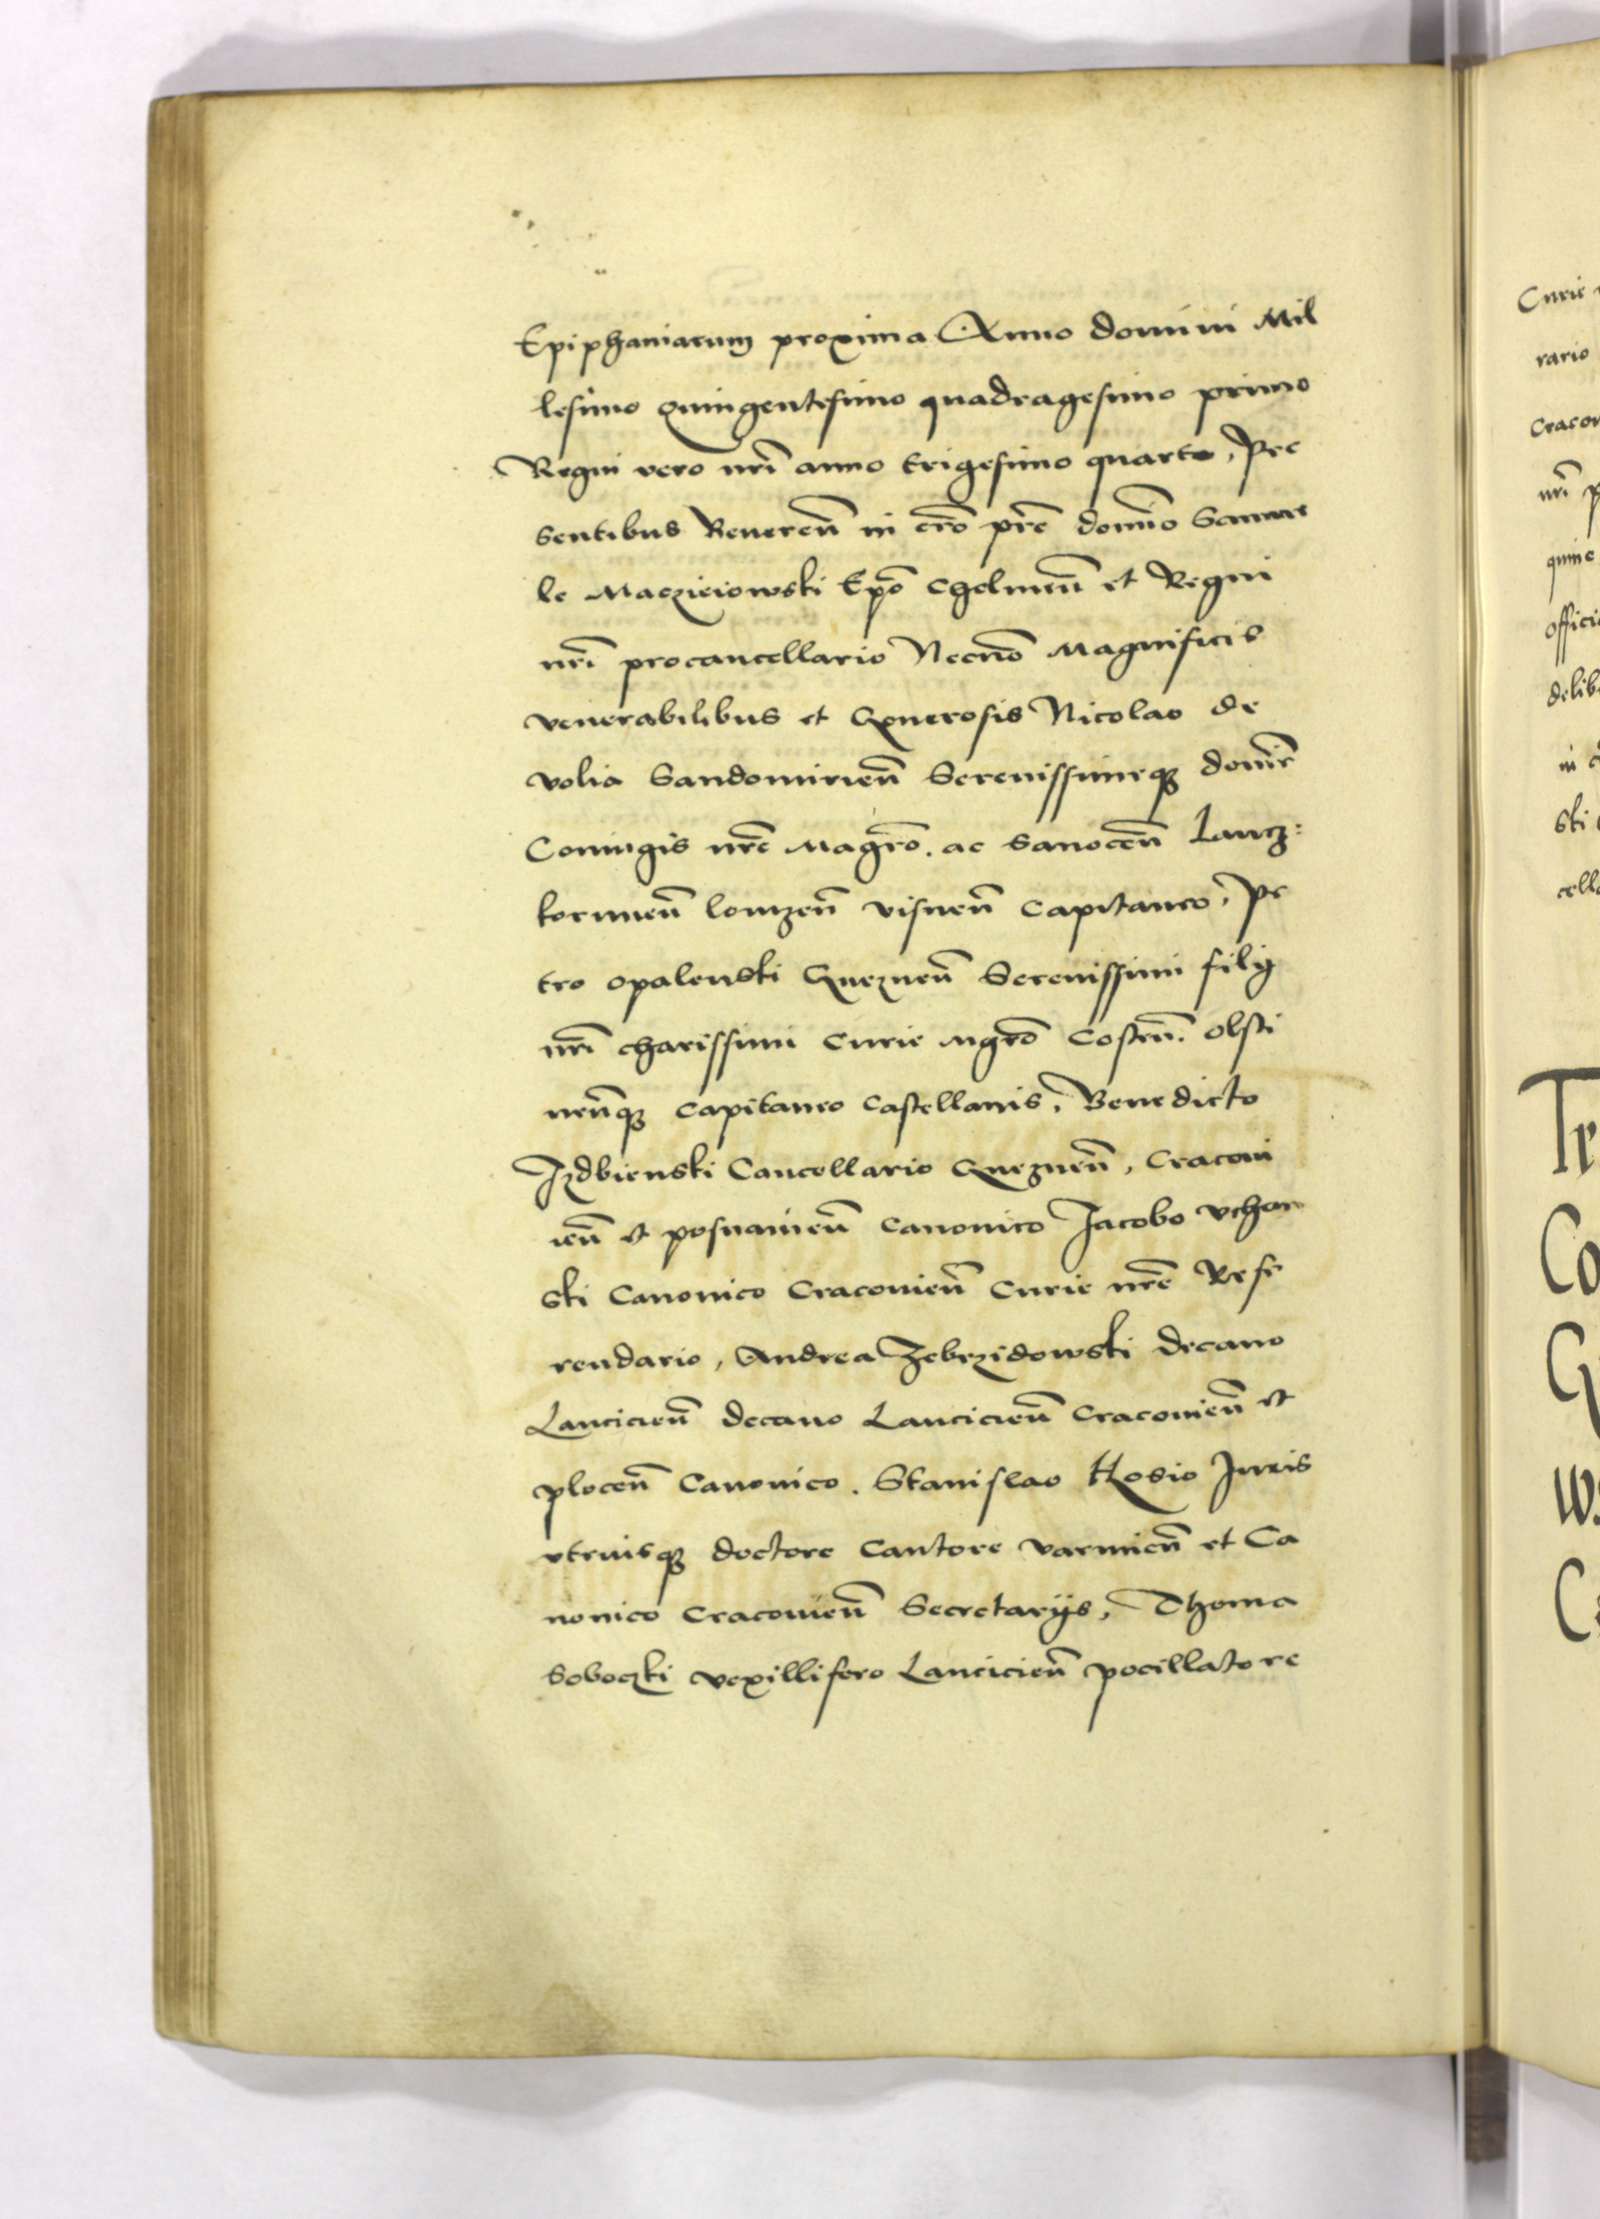 Epiphaniarum proxima Anno domini Mil
lesimo quingentesimo quadragesimo primo
Regni vero nr̃i anno trigesimo quarto, Pre
sentibus Reueren̄ in cr̃o pr̃e domi̅o Samue
le Maczieiowski Ep̃o Chelmen̄ et Regni
nr̃i procancellario Necno̅ Magnificis
venerabilibus et Generosis Nicolao de
volia Sandomirien̄ Serenissimeq₃ domi̅e
Coniugis nr̃e Magr̃o. ac Sanocen̄ Lancz:
korunen̄ lomzen̄ visnen̄ Capitaneo, Pe
tro opalenski Gneznen̄ Serenissimi filij
nr̃i charissimi Curie Mgr̃o Costen̄. olsti
nen̄q₃ Capitaneo Castellanis, Benedicto
Izdbienski Cancellario Gneznen̄, Craconi
ien̄ et posnanien̄ Canonico Jacobo vchan
ski Canonico Craconien̄ Curie nr̃e Refe
rendario, Andrea Zebrzidowski decano
Lancicien̄ decano Lancicien̄ Craconien̄ et
plocen̄ Canonico. Stanislao Hosio Juris
vtriusq₃ doctore Cantore varmien̄ et Ca
nonico Craconien̄ Secretarijs, Thoma
Soboczki vexillifero Lancicien̄ pocillatore
Curie
rario
nr̃i
quine
offici
ski
Tr
Co